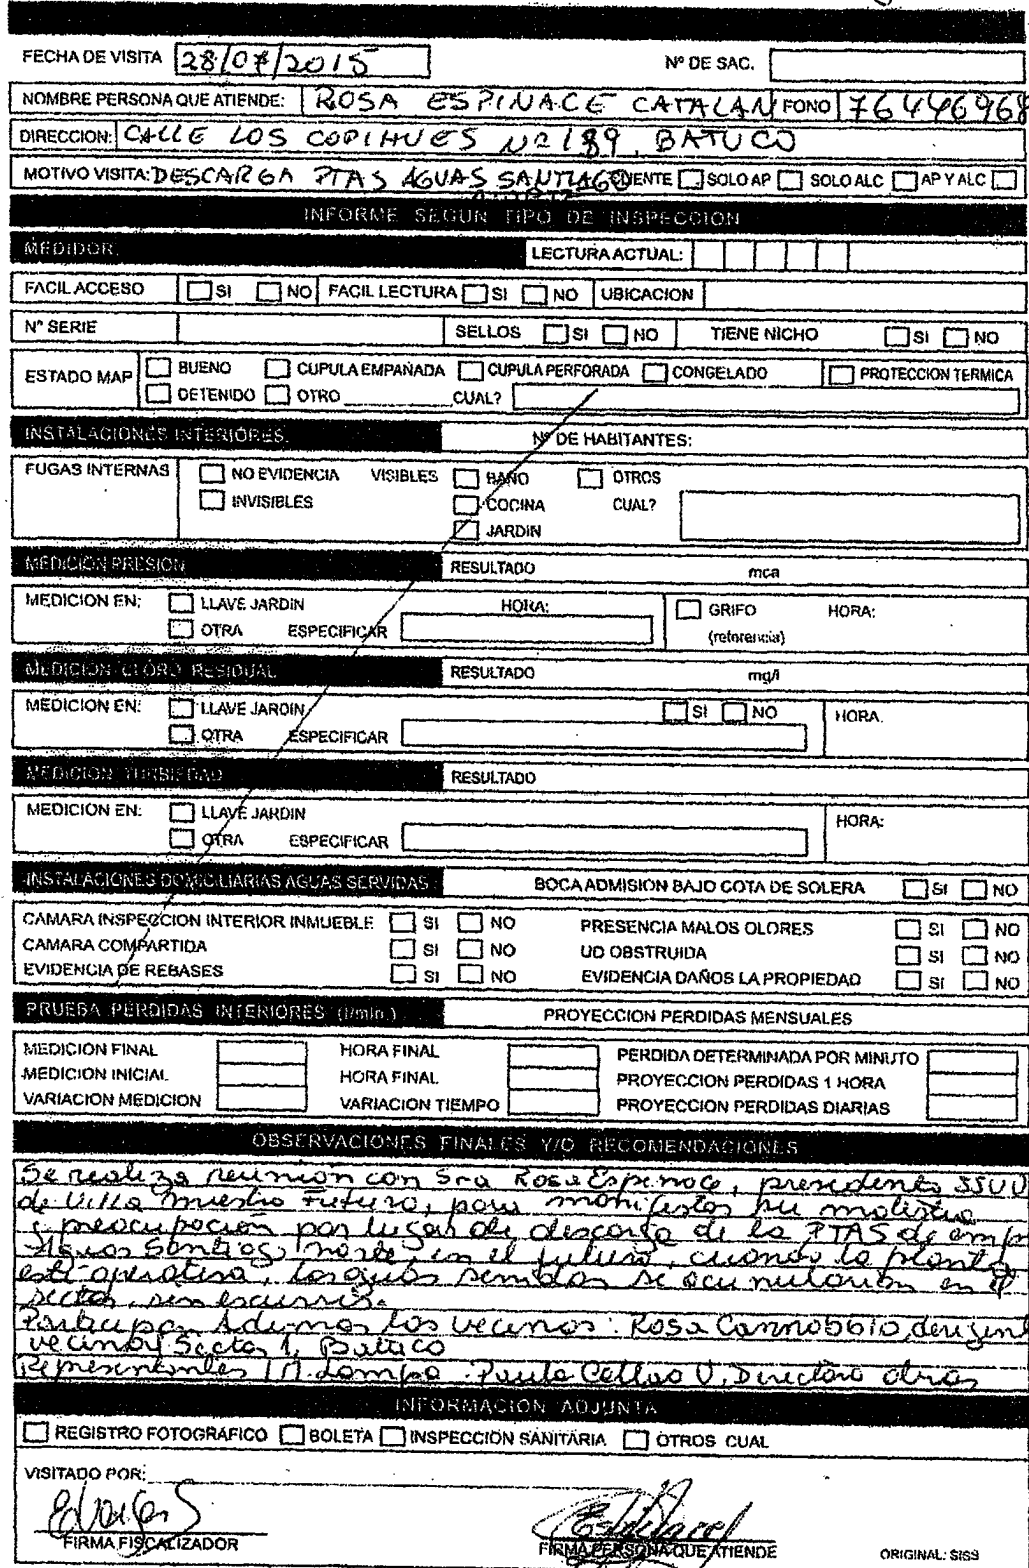 FECHA DE VISITA 28/07/2015 Nº DE SAC.
NOMBRE PERSONA QUE ATIENDE: ROSA ESPINACE CATALAN FONO 76446968
DIRECCION: CALLE LOS COPIHUES Nº 189, BATUCO
MOTIVO VISITA: DESCARGA PTAS AGUAS SANTIAGO NORTE CLIENTE SOLO AP SOLO ALC AP Y ALC
INFORME SEGUN TIPO DE INSPECCION
MEDIDOR LECTURA ACTUAL:
FACIL ACCESO SI NO FACIL LECTURA SI NO UBICACION
Nº SERIE SELLOS SI NO TIENE NICHO SI NO
ESTADO MAP BUENO CUPULA EMPAÑADA CUPULA PERFORADA CONGELADO PROTECCION TERMICA
DETENIDO OTRO CUAL?
INSTALACIONES INTERIORES Nº DE HABITANTES:
FUGAS INTERNAS NO EVIDENCIA VISIBLES BAÑO OTROS
INVISIBLES COCINA CUAL?
JARDIN
MEDICION PRESION RESULTADO mca
MEDICION EN: LLAVE JARDIN HORA: GRIFO HORA:
OTRA ESPECIFICAR (referencia)
MEDICION CLORO RESIDUAL RESULTADO mg/l
MEDICION EN: LLAVE JARDIN SI NO HORA.
OTRA ESPECIFICAR
MEDICION TURBIEDAD RESULTADO
MEDICION EN: LLAVE JARDIN HORA:
OTRA ESPECIFICAR
INSTALACIONES DOMICILIARIAS AGUAS SERVIDAS BOCA ADMISION BAJO COTA DE SOLERA SI NO
CAMARA INSPECCION INTERIOR INMUEBLE SI NO PRESENCIA MALOS OLORES SI NO
CAMARA COMPARTIDA SI NO UD OBSTRUIDA SI NO
EVIDENCIA DE REBASES SI NO EVIDENCIA DAÑOS LA PROPIEDAD SI NO
PRUEBA PERDIDAS INTERIORES (l/min.) PROYECCION PERDIDAS MENSUALES
MEDICION FINAL HORA FINAL PERDIDA DETERMINADA POR MINUTO
MEDICION INICIAL HORA FINAL PROYECCION PERDIDAS 1 HORA
VARIACION MEDICION VARIACION TIEMPO PROYECCION PERDIDAS DIARIAS
OBSERVACIONES FINALES Y/O RECOMENDACIONES
Se realiza reunión con Sra Rosa Espinace, presidenta JJVV
de Villa Nuestro Futuro, para manifestar su molestia
y preocupación por lugar de descarga de la PTAS de emp
Aguas Santiago norte, en el futuro, cuando la planta
esté operativa, las aguas servidas se acumularían en el
sector, sin escurrir.
Participan Además los vecinos: Rosa Cannobbio, dirigent
vecinos Sector 1, Batuco
Representantes I.M. Lampa: Paula Callao V, Directora obras
INFORMACION ADJUNTA
REGISTRO FOTOGRAFICO BOLETA INSPECCION SANITARIA OTROS CUAL
VISITADO POR:
FIRMA FISCALIZADOR FIRMA PERSONA QUE ATIENDE ORIGINAL: SISS